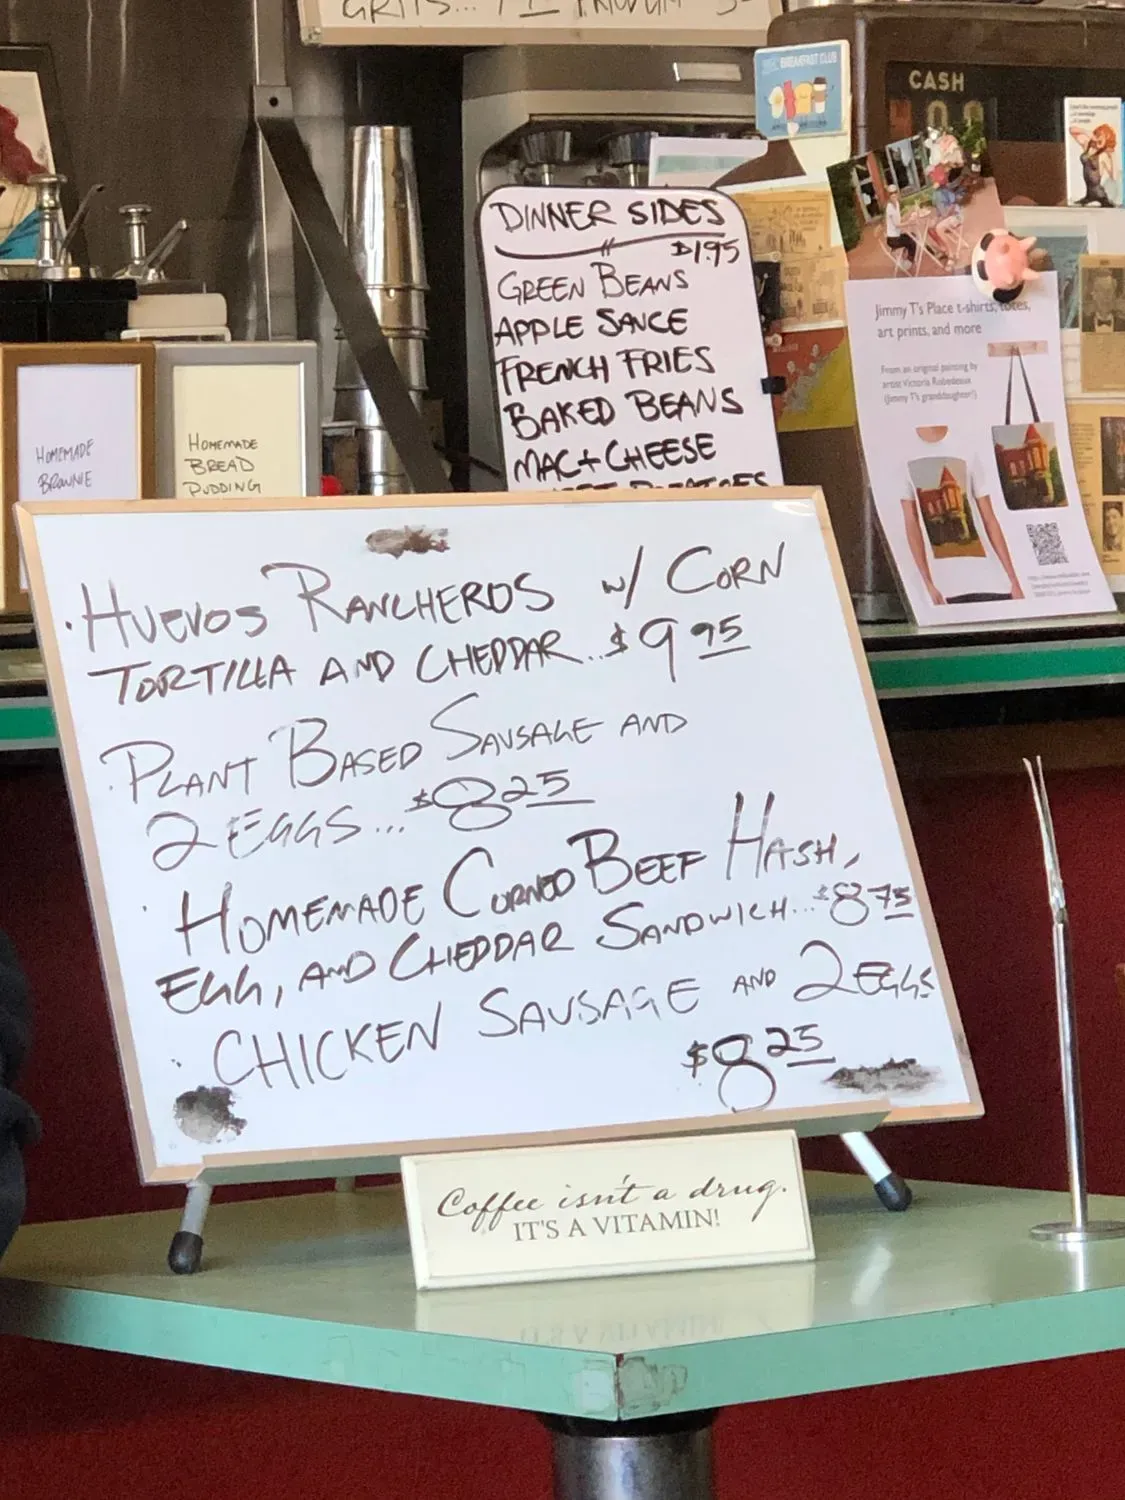 GRITS...
BREAKFAST CLUB
CASH
DINNER SIDES
$1.95
GREEN BEANS
APPLE SAUCE
FRENCH FRIES
BAKED BEANS
MAC+CHEESE
POTATOES
Jimmy T's Place t-shirts, totes,
art prints, and more
From an original painting by
artist Victoria Robedeaux
(Jimmy T's granddaughter!)
HOMEMADE
BROWNIE
HOMEMADE
BREAD
PUDDING
· HUEVOS RANCHEROS W/ CORN
TORTILLA AND CHEDDAR..$9 95
· PLANT BASED SAUSAGE AND
2 EGGS...$8 25
· HOMEMADE CORNED BEEF HASH,
EGG, AND CHEDDAR SANDWICH...$8 75
· CHICKEN SAUSAGE AND 2 EGGS
$8 25
Coffee isn't a drug.
IT'S A VITAMIN!